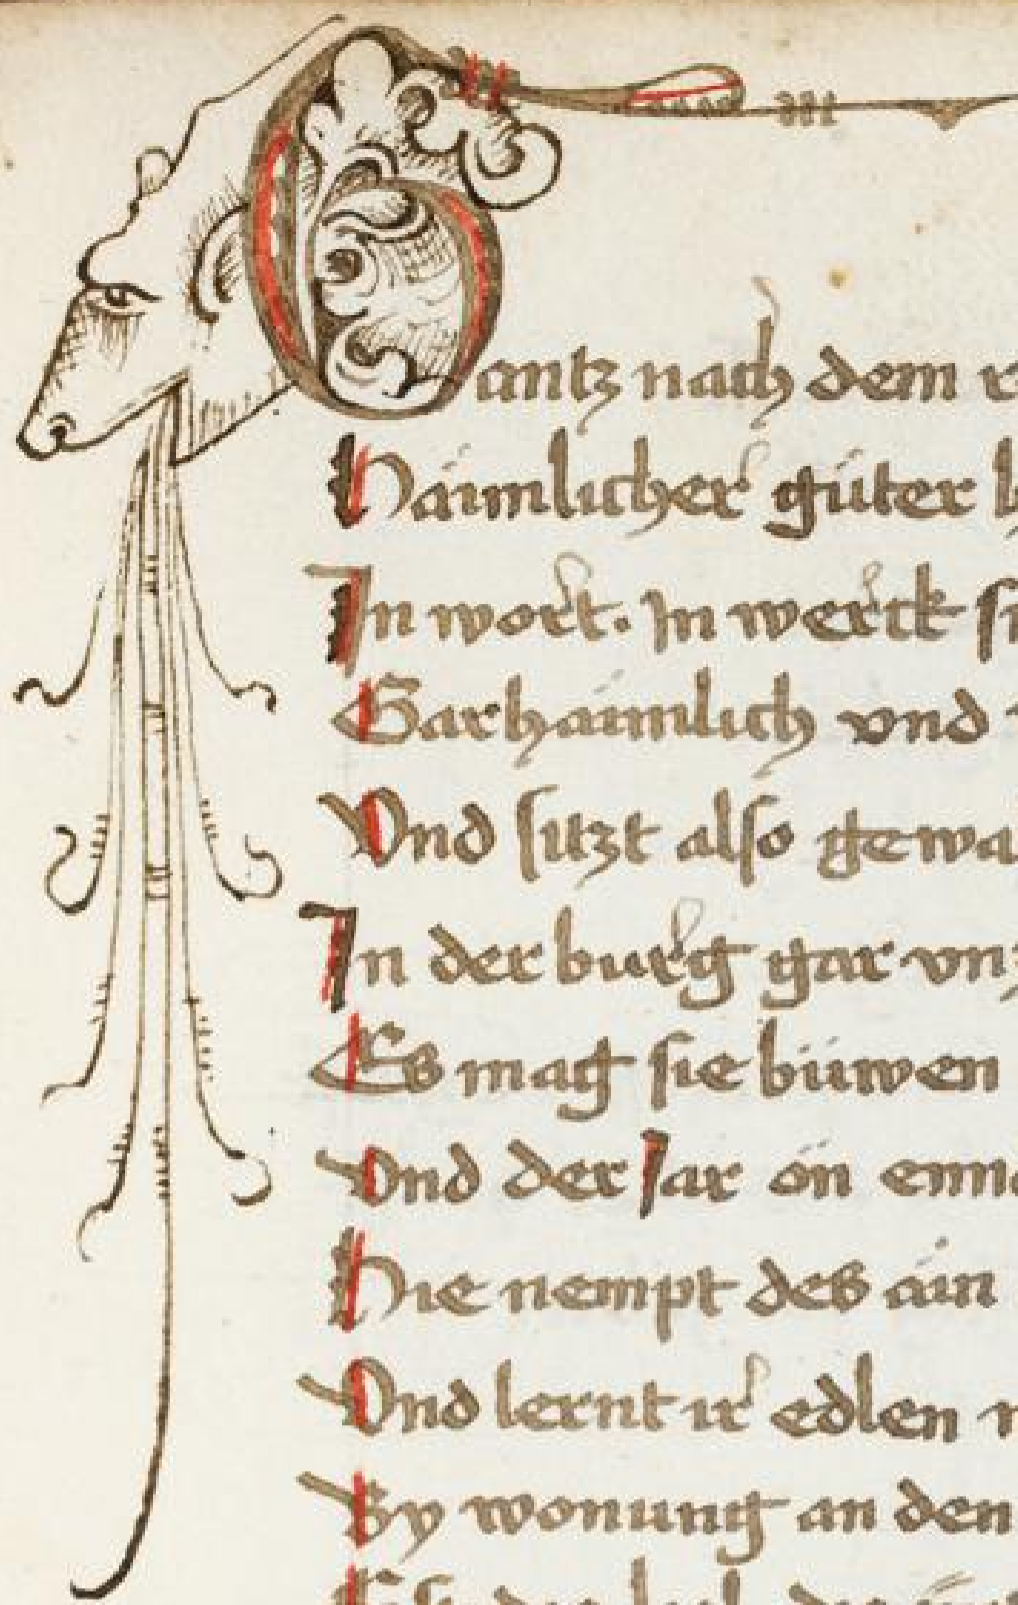 Gantz nach dem
Haimlicher güter
In wort. In werck
Gar haimlich vnd
Vnd sitzt also gewa
In der burg gar vn
Es mag sie büwen
Vnd der Jar on
Hie nempt des ain
Vnd lernt ir edlen
By wonung an den